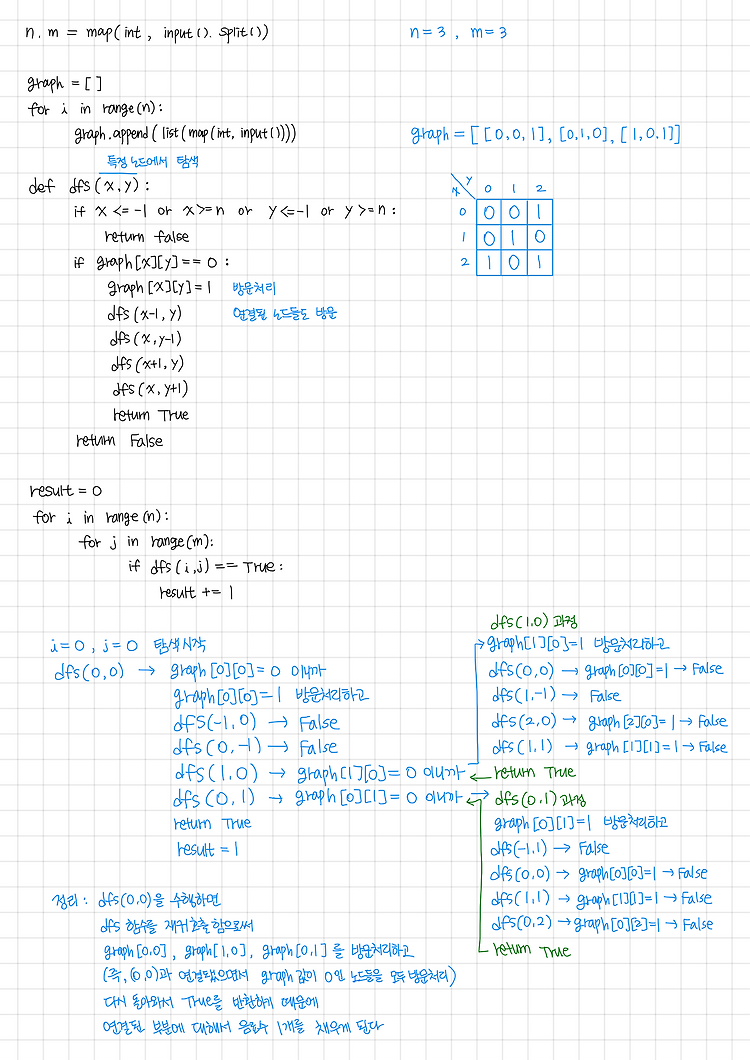 n. m = map(int, input().split())
n=3 , m=3
graph = []
for i in range(n):
graph.append(list(map(int, input()))
graph = [[0,0,1], [0,1,0], [1,0,1]]
특정 노드에서 탐색
def dfs(x,y):
if x <= -1 or x>=n or y<=-1 or y>=n:
return false
if graph[x][y]==0:
graph[x][y]=1 방문처리
dfs(x-1,y) 연결된 노드들도 방문
dfs(x,y-1)
dfs(x+1,y)
dfs(x,y+1)
return True
return False
y
x 0 1 2
0 0 0 1
1 0 1 0
2 1 0 1
result = 0
for i in range(n):
for j in range(m):
if dfs(i,j) == True:
result += 1
i=0, j=0 탐색시작
dfs(0,0) → graph[0][0]=0 이니까
graph[0][0]=1 방문처리하고
dfs(-1,0) → False
dfs(0,-1) → False
dfs(1,0) → graph[1][0]=0 이니까
dfs(0,1) → graph[0][1]=0 이니까
return True
result=1
dfs(1,0) 과정
graph[1][0]=1 방문처리하고
dfs(0,0) → graph[0][0]=1 → False
dfs(1,-1) → False
dfs(2,0) → graph[2][0]=1 → False
dfs(1,1) → graph[1][1]=1 → False
return True
dfs(0,1) 과정
graph[0][1]=1 방문처리하고
dfs(-1,1) → False
dfs(0,0) → graph[0][0]=1 → False
dfs(1,1) → graph[1][1]=1 → False
dfs(0,2) → graph[0][2]=1 → False
return True
정리: dfs(0,0)을 수행하면
dfs 함수를 재귀호출함으로써
graph[0,0], graph[1,0], graph[0,1]를 방문처리하고
(즉, (0,0)과 연결됐으면서 graph 값이 0인 노드들을 모두 방문처리)
다시 돌아와서 True를 반환하게 때문에
연결된 부분에 대해서 음료수 1개를 채우게 된다